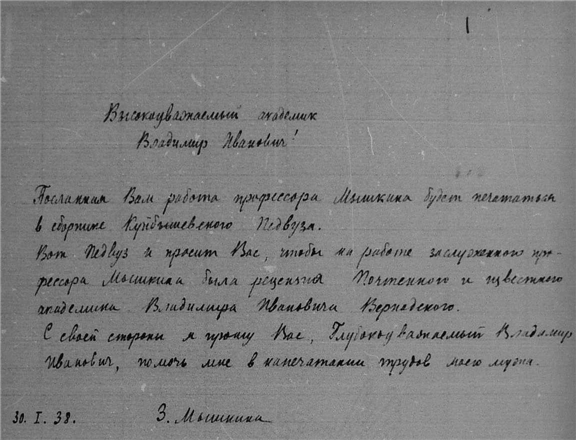 1
Высокоуважаемый академик
Владимир Иванович!
Посланная Вам работа профессора Мышкина будет печататься
в сборнике Куйбышевского Педвуза.
Вот Педвуз и просит Вас, чтобы на работе заслуженного про-
фессора Мышкина была рецензия Почтенного и известного
академика Владимира Ивановича Вернадского.
С своей стороны я прошу Вас, Глубокоуважаемый Владимир
Иванович, помочь мне в напечатании трудов моего мужа.
30. I. 38. З. Мышкина